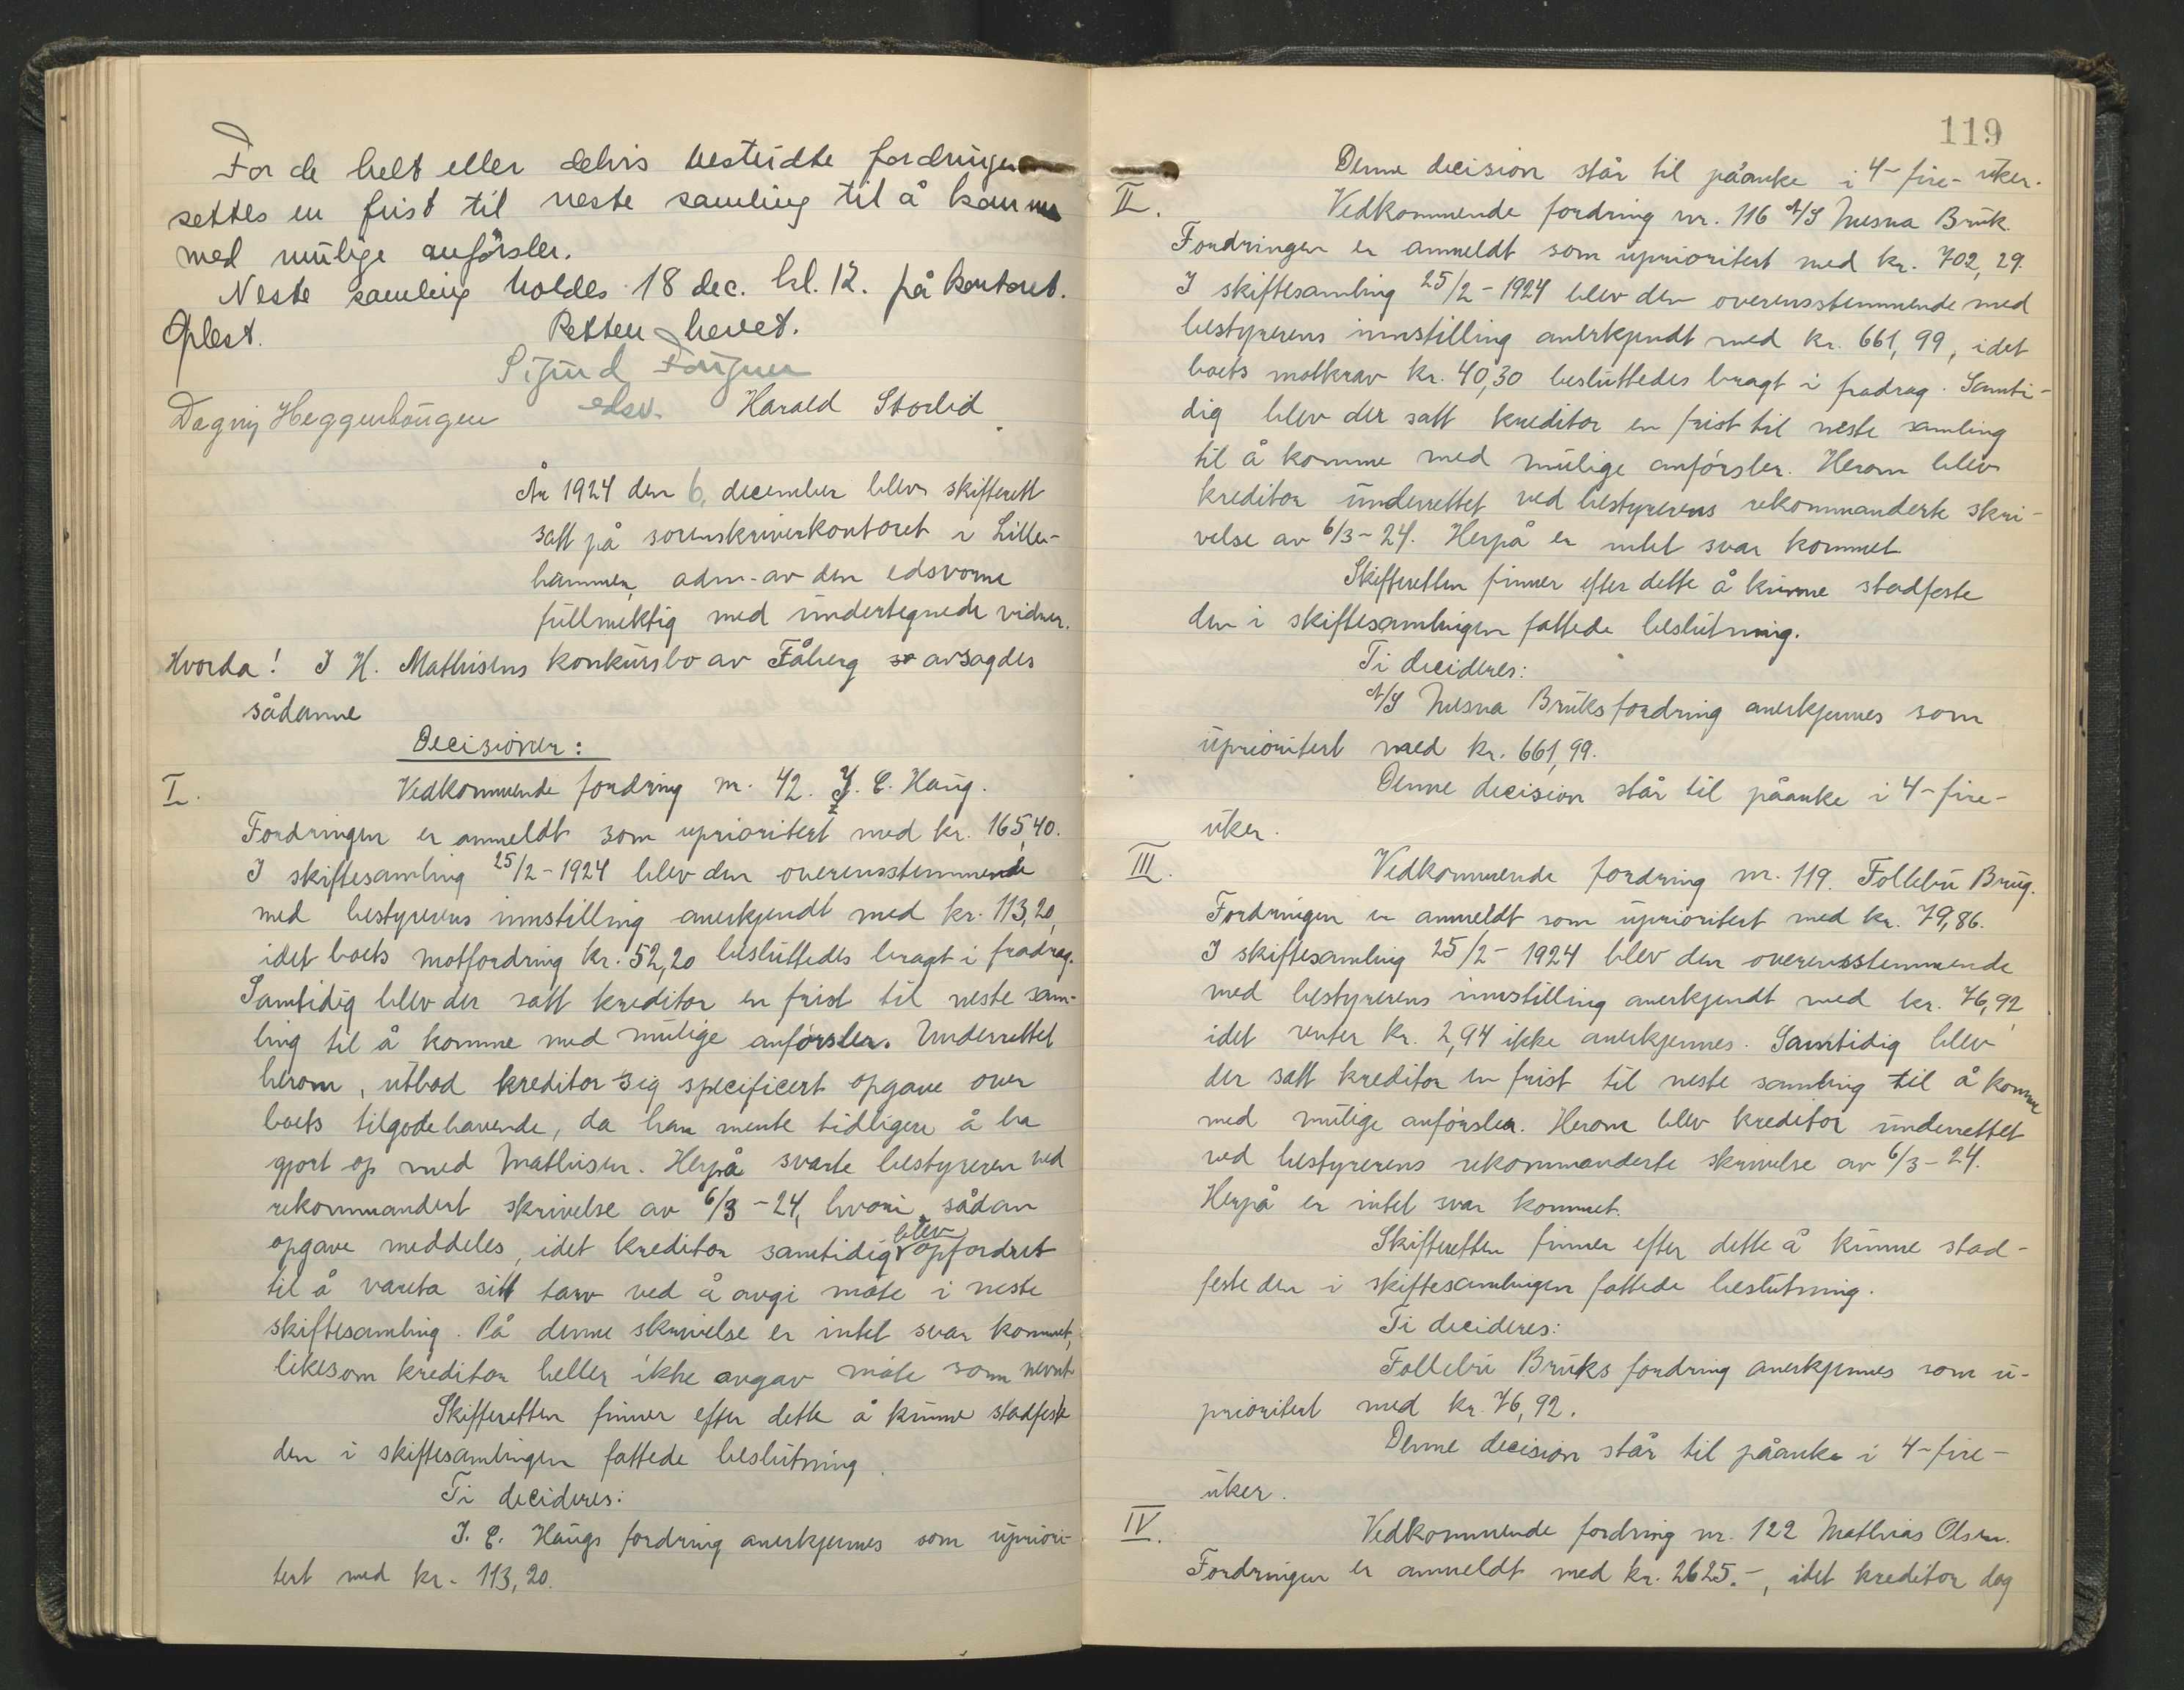 For de helt eller delvis bestridte fordringer
settes en frist til neste samling til å komme
med mulige anførsler.
Neste samling holdes 18 dec. kl. 12. på kontoret.
Oplest. Retten hevet.
Sigurd
edsv. Harald Storlid
Dagny Heggenhougen
År 1924 den 6. december blev skifterett
satt på sorenskriverkontoret i Lille-
hammer, adm. av den edsvorne
fullmektig med undertegnede vidner.
Hvorda! I H. Mathisens konkursbo av Fåberg avsagdes
sådanne
Decisioner:
I. Vedkommende fordring nr. 42. J. E. Haug.
Fordringen er anmeldt som uprioritert med kr. 165,40.
I skiftesamling 25/2-1924 blev den overensstemmende
med bestyrerens innstilling anerkjendt med kr. 113,20,
idet boets motfordring kr. 52,20 besluttedes bragt i fradrag.
Samtidig blev der satt kreditor en frist til neste sam-
ling til å komme med mulige anførsler. Underrettet
herom, utbad kreditor sig specificert opgave over
boets tilgodehavende, da han mente tidligere å ha
gjort op med Mathisen. Herpå svarte bestyreren ved
rekommandert skrivelse av 6/3-24, hvori sådan
opgave meddeles, idet kreditor samtidig blev opfordret
til å vareta sitt tarv ved å avgi møte i neste
skiftesamling. På denne skrivelse er intet svar kommet,
likesom kreditor heller ikke avgav møte som nevnt
Skifteretten finner efter dette å kunne stadfeste
den i skiftesamlingen fattede beslutning.
Ti decideres:
J. E. Haugs fordring anerkjennes som upriori-
tert med kr. 113,20.
119
Denne decision står til påanke i 4-fire- uker.
II. Vedkommende fordring nr. 116 A/S Mesna Bruk.
Fordringen er anmeldt som uprioritert med kr. 702,29.
I skiftesamling 25/2-1924 blev den overensstemmende med
bestyrerens innstilling anerkjendt med kr. 661,99, idet
boets motkrav kr. 40,30 besluttedes bragt i fradrag. Samti-
dig blev der satt kreditor en frist til neste samling
til å komme med mulige anførsler. Herom blev
kreditor underrettet ved bestyrerens rekommanderte skri-
velse av 6/3-24. Herpå er intet svar kommet
Skifteretten finner efter dette å kunne stadfeste
den i skiftesamlingen fattede beslutning.
Ti decideres:
A/S Mesna Bruks fordring anerkjennes som
uprioritert med kr. 661,99.
Denne decision står til påanke i 4-fire-
uker.
III. Vedkommende fordring nr. 119. Follebu Brug.
Fordringen er anmeldt som uprioritert med kr. 79,86.
I skiftesamling 25/2-1924 blev den overensstemmende
med bestyrerens innstilling anerkjendt med kr. 76,92,
idet renter kr. 2,94 ikke anerkjennes. Samtidig blev
der satt kreditor en frist til neste samling til å komme
med mulige anførsler. Herom blev kreditor underrettet
ved bestyrerens rekommanderte skrivelse av 6/3-24.
Herpå er intet svar kommet.
Skifteretten finner efter dette å kunne stad-
feste den i skiftesamlingen fattede beslutning.
Ti decideres:
Follebu Bruks fordring anerkjennes som u-
prioritert med kr. 76,92.
Denne decision står til påanke i 4-fire-
uker.
IV. Vedkommende fordring nr. 122 Mathias Olsen.
Fordringen er anmeldt med kr. 2625.-, idet kreditor dog